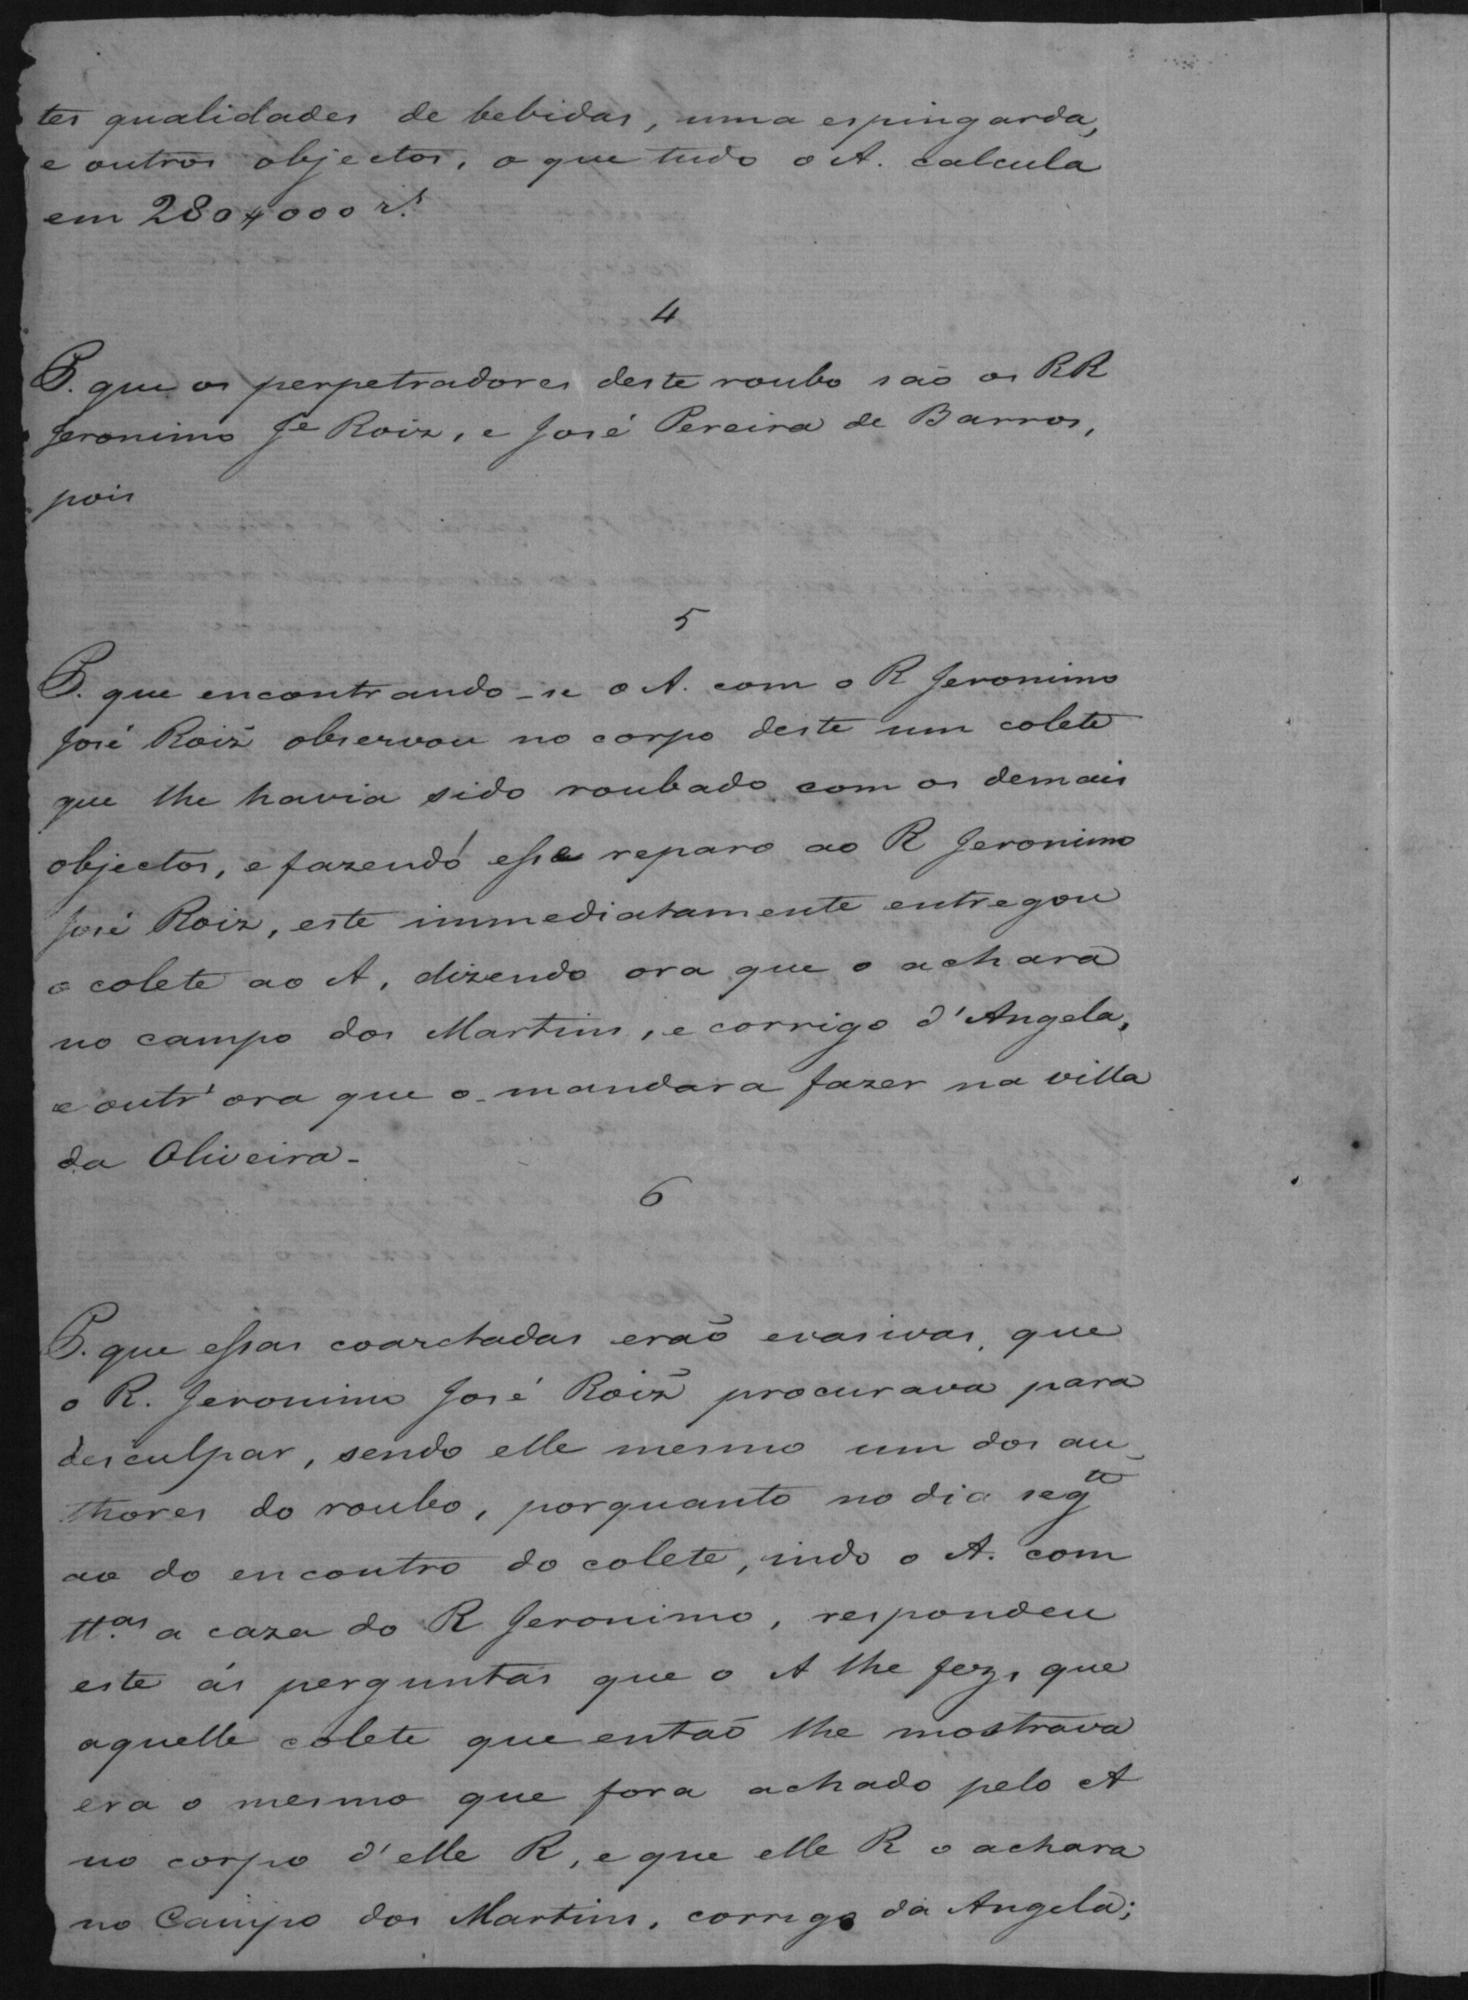 tes qualidades de bebidas, uma espingarda,
e outros objectos, o que tudo o A. calcula
em 280$000 rs.
4
P. que os perpetradores deste roubo são os RR
Jeronimo Je Roiz, e José Pereira de Barros,
pois
5
P. que encontrando-se o A. com o R Jeronimo
José Roiz observou no corpo deste um colete
que lhe havia sido roubado com os demais
objectos, e fazendo esse reparo ao R Jeronimo
José Roiz, este immediatamente entregou
o colete ao A, dizendo ora que o achara
no campo dos Martins, e corrigo d'Angela,
e outr'ora que o mandara fazer na villa
da Oliveira-
6
P. que essas coarctadas erão evasivas, que
o R. Jeronimo José Roiz procurava para
desculpar, sendo elle mesmo um dos au-
thores do roubo, porquanto no dia segte
ao do encontro do colete, indo o A. com
ttas a caza do R Jeronimo, respondeu
este ás perguntas que o A lhe fez, que
aquelle colete que então lhe mostrava
era o mesmo que fora achado pelo A
no corpo d'elle R, e que elle R o achara
no Campo dos Martins, corrigo da Angela;